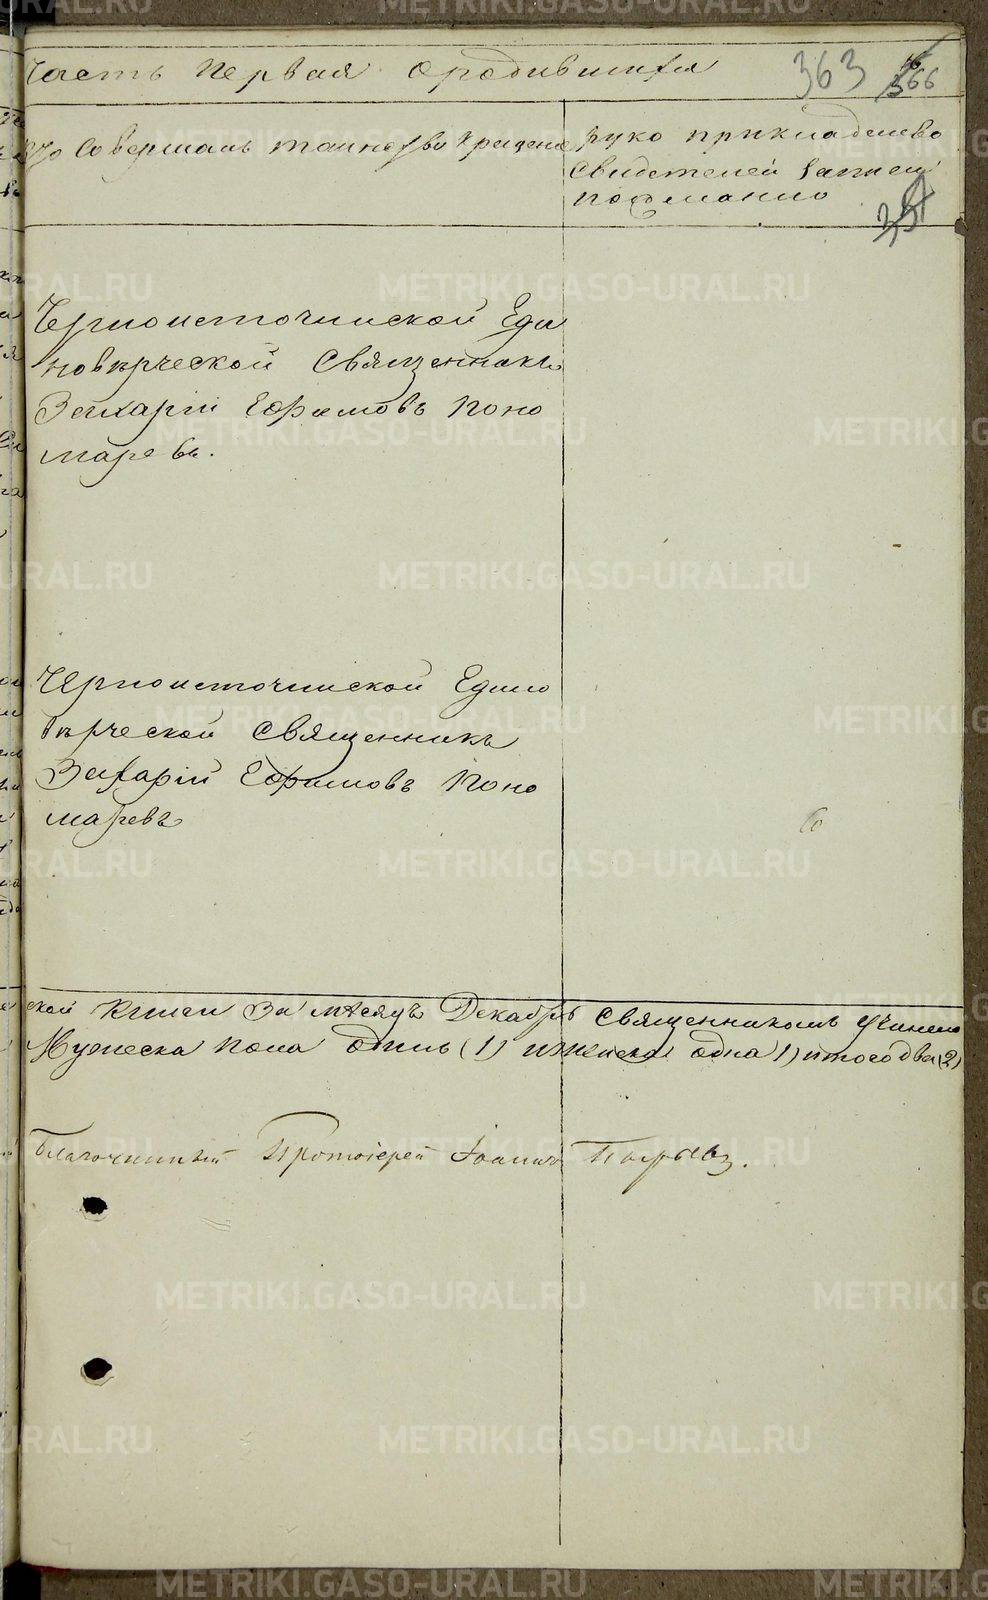 Часть первая ородившихся 363 366
Кто Совершалъ таинство крещенія
руко прикладство
Свидетелей записи
по желанию
Черноисточинской Еди
новѣрческой Священникъ
Захарій Ефимовъ Поно
маревъ.
Черноисточинской Едино
вѣрческой священникъ
Захарій Ефимовъ Поно
маревъ
ской книги За мѣсяцъ Декабрь священникомъ учинено
Мужеска пола одинъ (1) иженска одна 1) итого два (2)
Благочинный Протоіерей Іоаннъ